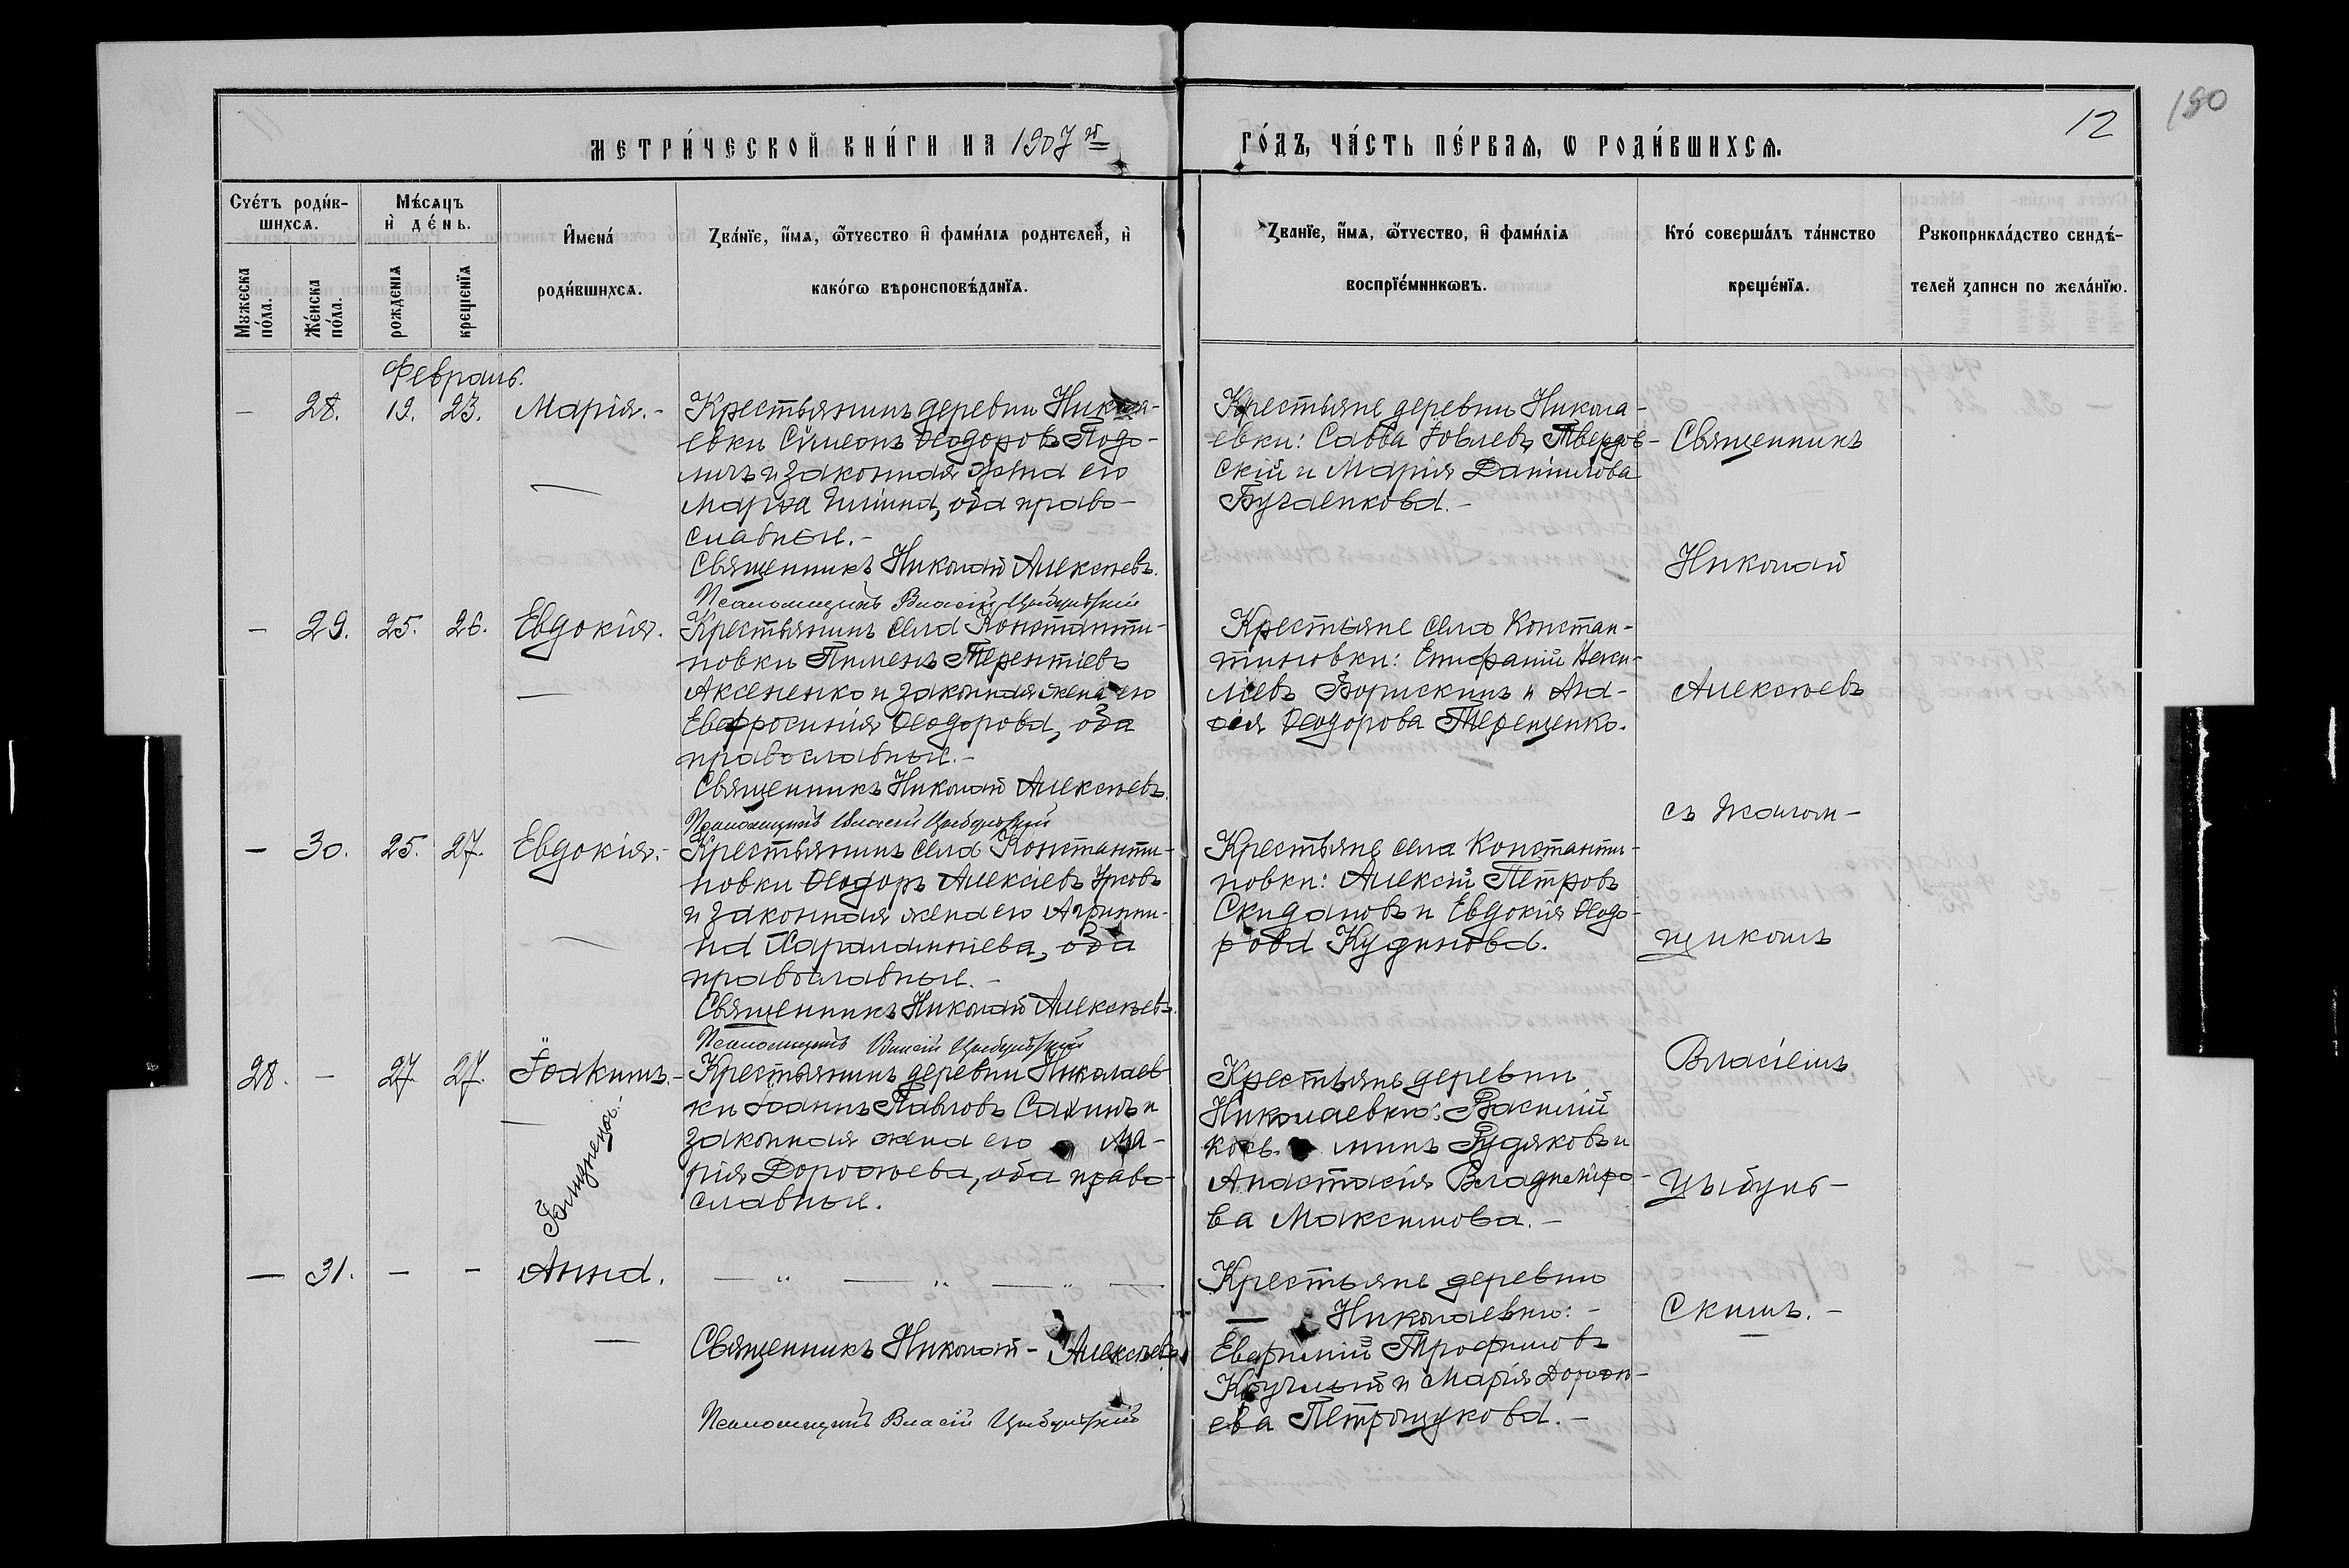 МЕТРИ́ЧЕСКОЙ КНИ́ГИ НА 1907 й
ГО́ДЪ, ЧА́СТЬ ПЕ́РВАѦ, Ѡ РОДИ́ВШИХСѦ.
12
190
Счéтъ роди́в-
шихсѧ.
Мꙋжеска
пóла.
Же́нска
пóла.
Мѣ́сѧцъ
и҆ де́нь.
рожденїѧ
крещенїѧ
И҆мена́
роди́вшихсѧ.
Ꙁва́нїе, и҆́мѧ, ѻ҆́тчество и҆ фами́лїѧ родителей, и҆
како́гѡ вѣроисповѣ́данїѧ.
Ꙁванїе, и҆́мѧ, ѻ҆́тчество, и҆ фами́лїѧ
воспрїе́мникѡвъ.
Кто́ соверша́лъ та́инство
креще́нїѧ.
Рꙋкоприкла́дство свидѣ́-
телей ꙁаписи по жела́нїю.
Февраль.
— 28. 19. 23. Марія. -
Крестьянинъ деревни Никола-
евки Сѵмеонъ Ѳеодоровъ Подо-
личъ и законная жена его
Марѳа Иліина, оба право-
славные. -
Священникъ Николай Алексѣевъ.
Псаломщикъ Власій Цыбульскій
Крестьяне деревни Никола-
евки: Савва Іовлевъ Твердов-
скій и Марія Даніилова
Бугаенкова. -
— 29. 25. 26. Евдокія.
Крестьянинъ села Константи-
новки Пименъ Терентіевъ
Аксененко и законная жена его
Евфросинія Ѳеодорова, оба
православные. -
Священникъ Николай Алексѣевъ.
Псаломщикъ Власій Цыбульскій
Крестьяне села Констан-
тиновки: Епифаній
Борискинъ и
Ѳеодорова Терещенко.
— 30. 25. 27. Евдокія. -
Крестьянинъ села Константи-
новки Ѳеодоръ Алексіевъ
и законная жена его Агриппи-
на Харалампіева, оба
православные. -
Священникъ Николай Алексѣевъ.
Псаломщикъ Власій Цыбульскій
Крестьяне села Константи-
новки: Алексій Петровъ
Скидановъ и Евдокія Ѳеодо-
рова Кудинова.
28. — 27. 27. Іоакимъ. -
Близнецы. -
Крестьянинъ деревни Николаев-
ки Іоаннъ Павловъ и
законная жена его Ма-
рія Дороѳеева, оба право-
славные.
Крестьяне деревни
Николаевки: Василій
Рудяковъ и
Анастасія Владиміро-
ва Максимова. -
— 31. - - Анна.
— " — " — " —
Священникъ Николай - Алексѣевъ
Псаломщикъ Власій Цыбульскій
Крестьяне деревни
— Николаевки: -
Трофимовъ
и Марія Дороѳе-
ева Петрощукова. -
Священникъ
Николай
Алексѣевъ
съ Псалом-
щикомъ
Власіемъ
Цыбуль-
скимъ. -